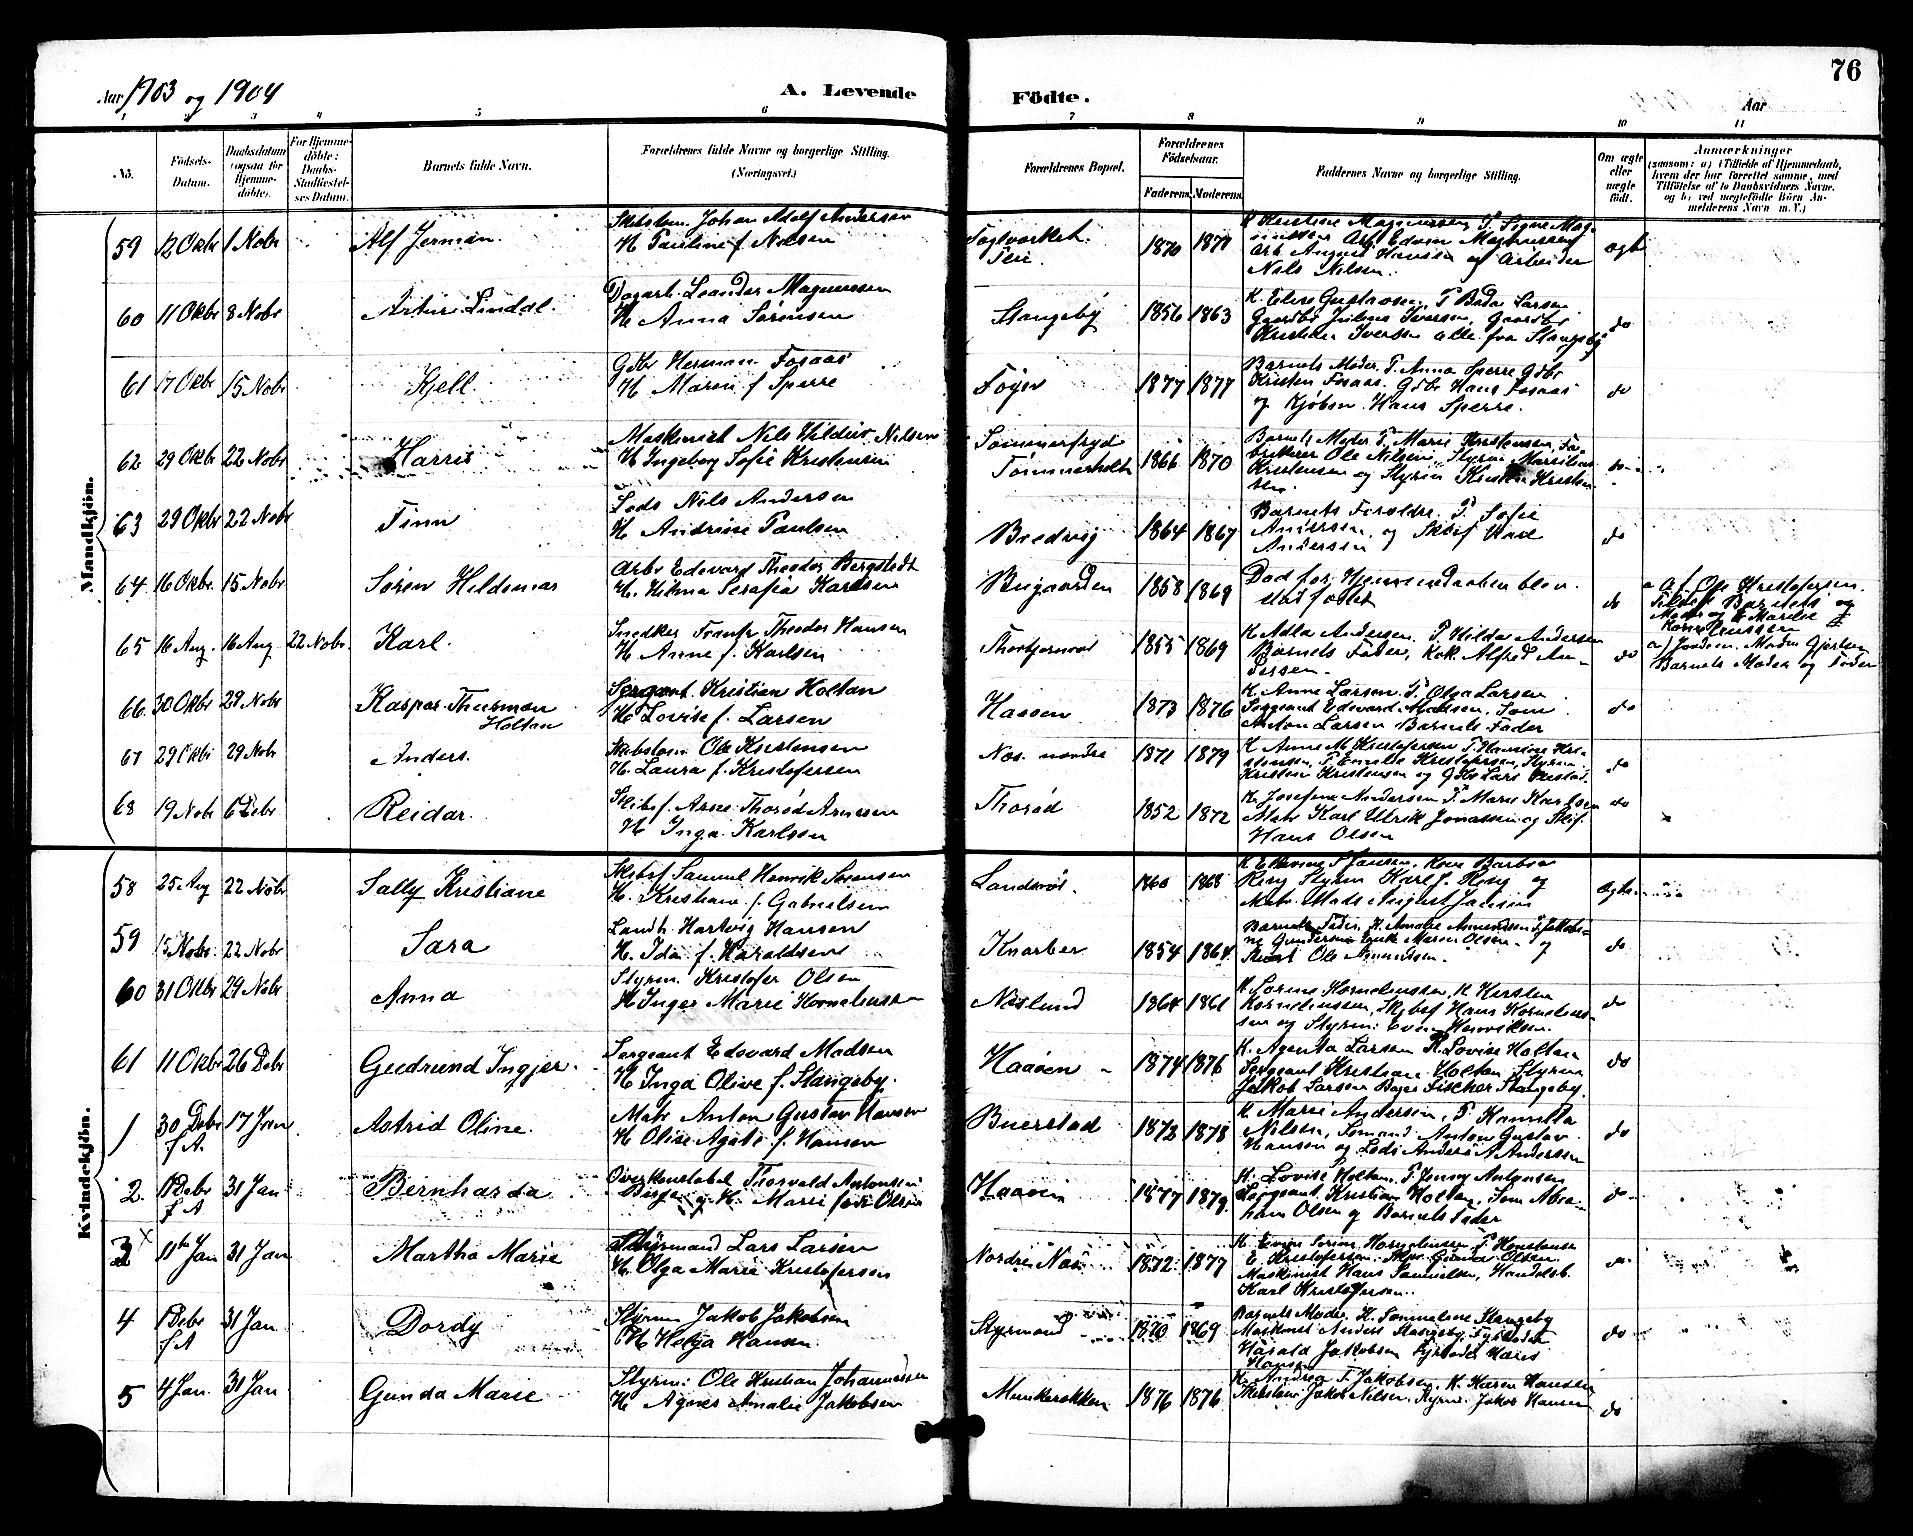 76
Aar 1903 og 1904
A. Levende Födte.
Aar
1 2 3 4 5 6 7 8 9 10 11
No.
Födsels-Datum.
Daabsdatum (ogsaa for Hjemme-döbte).
For Hjemme-döbte: Daabs-Stadfæstel-ses Datum.
Barnets fulde Navn.
Forældrenes fulde Navne og borgerlige Stilling. (Næringsvei.)
Forældrenes Bopæl.
Forældrenes Födselsaar.
Faderens Moderens
Faddernes Navne og borgerlige Stilling.
Om ægte eller uægte födt.
Anmærkninger
(saasom: a) i Tilfælde af Hjemmedaab, hvem der har forrettet samme, med Tilföielse af to Daabsvidners Navne, og b) ved uægtefödte Börn An-melderens Navn m. V.)
Mandkjön.
59 12 Oktbr 1 Nobr Alf Jerman. Johan Adolf Andersen
H Pauline f. Nilsen
1870 1871
K Kristine Magnussen P. Signe Mag-
Arb Edvin Magnussen
Arb. August Hansen og Arbeider
Nils Nilsen. ægte
60 11 Oktbr 8 Nobr Artur Lindal. Dagarb. Leander Magnussen
H Anna Sørensen
Stangeby 1856 1863
K. Elise Gustavsen, P Beda Larsen
Gaardbr Julius Iversen, Gaardbr
Kristian Iversen alle fra Stangeby do
61 17 Oktbr 15 Nobr Kjell. Gdbr Herman Fosaas
H Maren f Sperre
Føyn 1877 1877
Barnets Moder, P. Anna Sperre Gdbr
Kristen Fosaas. Gdbr Hans Fosaas
og Kjøbm. Hans Sperre. do
62 29 Oktbr 22 Nobr Harris Maskinist Nils Hildus Nilsen
H Ingeborg Sofie Kristensen
Sommerfryd
Tømmerholt 1866 1870
Barnets Moder P. Marie Kristensen, Fa-
brikeier Ole Nilsen, Styrm
Kristensen og Styrm Kristen Kristen
sen. do
63 29 Oktbr 22 Nobr Finn Lods Nils Andersen
H Andrine Paulsen
Bredvig 1864 1867
Barnets Forældre. P. Sofie
Andersen, og Skbsf
Andersen do
64 16 Oktbr. 15 Nobr Søren Hildemar Arbr Edevard Theodor Bergstedt
H. Hilma Serafia Karlsen
Bugaarden 1858 1869
Død før Hjemmedaaben blev
stadfæstet do
a. af Ole Kristofersen.
Barnets
Moder og
65 16 Aug. 16 Aug 22 Nobr Karl. Snedker Frantz Theodor Hansen
H Anne f. Karlsen
1855 1869
K Adla Andersen, P. Hilda Andersen
Barnets Fader, Kok Alfred An-
dersen. do
a) Jordem.
Barnets Moder og Fader
66 30 Oktbr 29 Nobr Kaspar Thurman
Holtan
Sergeant Kristian Holtan
H. Lovise f. Larsen
Haaøen 1873 1876
K. Anne Larsen P. Olga Larsen
Sergeant Edevard Madsen, Tøm.
Anton Larsen Barnets Fader do
67 29 Oktbr 29 Nobr Anders. Ole Kristensen
H. Laura f. Kristofersen
Næs nordre 1871 1879
K Anne M Kristofersen P. Hansine Kri-
stensen, P Emilie Kristofersen, Styrm
Kristian Kristensen og do
68 19 Nobr 6 Debr Reidar. Skibsf. Arne Thorød Arnesen
H Inga Karlsen
Thorød 1852 1872
K. Josefine Andersen P. Marie Karlsen
Matr Karl Ulrik Jonassen og Skif.
Hans Olsen do
Kvindekjön.
58 25 Aug 22 Nobr Sally Kristiane Skibsf Samuel Henrik Sørensen
H. Kristiane f. Gabrielsen
Landerød. 1860 1868
Kone Barbra
Ring Styrm Karl J. Ring og
Matr. Mads August Jansen ægte
59 15 Nobr. 22 Nobr Sara Landh Hartvig Hansen
H. Ida f. Haroldsen
Knarber 1854 1864
Barnets Fader, K. Amalie Amundsen
Gundersen Maren Olsen og
Ole Amundsen. do
60 31 Oktbr 29 Nobr Anna Styrm. Kristofer Olsen
H Inger Marie Korneliussen
Næslund 1864 1861
K Lorine Korneliussen, K Kirsten
Korneliussen, Skbsf Hans Kornelius-
sen og Styrm: Even Henriksen. do
61 11 Oktbr 26 Debr Gudrund Ingjer. Sergeant Edevard Madsen
H Inga Olive f. Stangeby.
Haaøen 1874 1876
K. Agenta Larsen P. Lovise Holtan
Sergeant Kristian Holtan, Styrm
Jakob Larsen Bager Fischer Stangeby. do
1 30 Debr f.A. 17 Jan Astrid Oline. Matr Anton Gustav Hansen
H Oline Agate f. Hansen
Buerstad 1872 1878
K Marie Andersen, P Hanetta
Nilsen, Sømand Anton Gustav
Hansen og Lods Anders A Anderssen do
2. 1 Debr f A 31 Jan Bernharda Overkonstabel Thorvald Antonsen
Berje og H. Marie født Olsen
Haaøen 1877 1879
K. Lovise Holtan, P. Jenny Antonsen
Sergeant Kristian Holtan, Tøm Abra-
ham Olsen og Barnets Fader do
3 11te Jan 31 Jan Martha Marie Styrmand Lars Larsen
H. Olga Marie Kristofersen
Nordre Næs 1872 1877
P Konstanse
E Kristofersen, Gunder Olsen
Maskinist Hans Samuelsen, Handelsb.
Karl Kristofersen. do
4 1 Debr f A 31 Jan Dordy Styrm Jakob Jakobsen
H Helga Hansen
Styrmoed 1870 1869
Barnets Moder. K. Tomeline Stangeby
Maskinist Anders Stangeby, Fyrbøder
Harald Jakobsen Fyrbøder Haris
Hansen do
5 4 Jan 31 Jan Gunda Marie Styrm: Ole Kristian Johannessen
H Agnes Amalie Jakobsen
Munkerekken 1876 1876
K. Andrea F. Jakobsen, K. Karen Hansen
Jakob Nilsen. Styrm. Jakob Hansen do